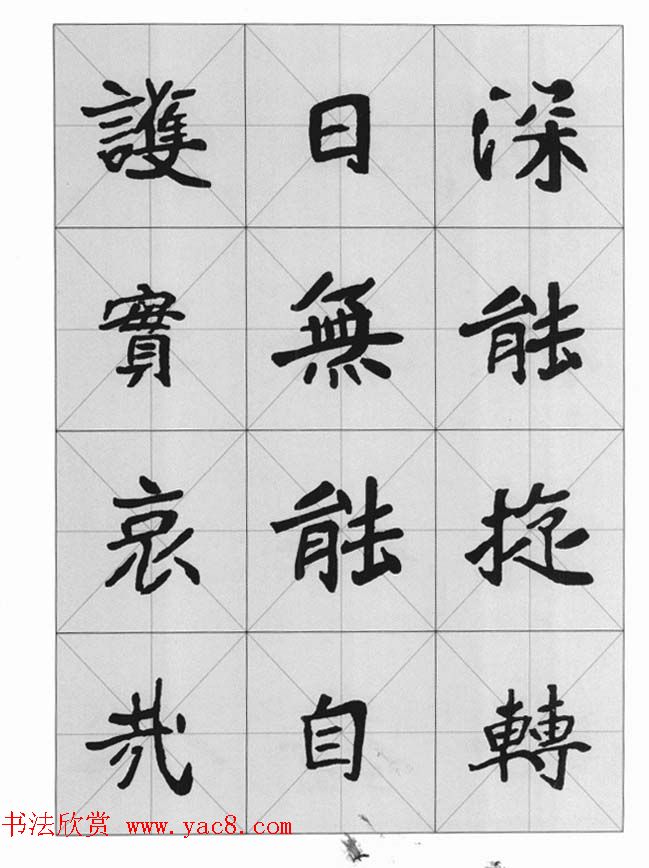 深能旋轉
日無能自
護實哀哉
书法欣赏 www.yac8.com